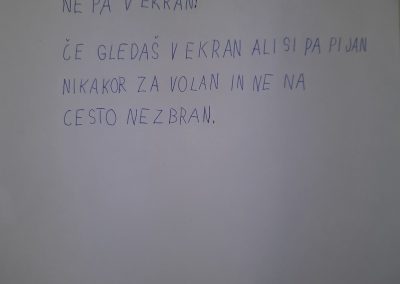 NE PA V EKRAN!
ČE GLEDAŠ V EKRAN ALI SI PA PIJAN
NIKAKOR ZA VOLAN IN NE NA
CESTO NEZBRAN.